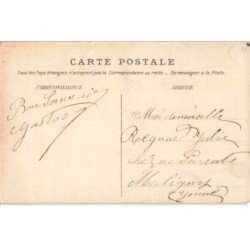 CARTE POSTALE
Tous les Pays étrangers n'acceptent pas la Correspondance au recto ... Se renseigner à la Poste.
CORRESPONDANCE
ADRESSE
Bon Souvenir
Gaston
Mademoiselle
Julie
chez ses Parents